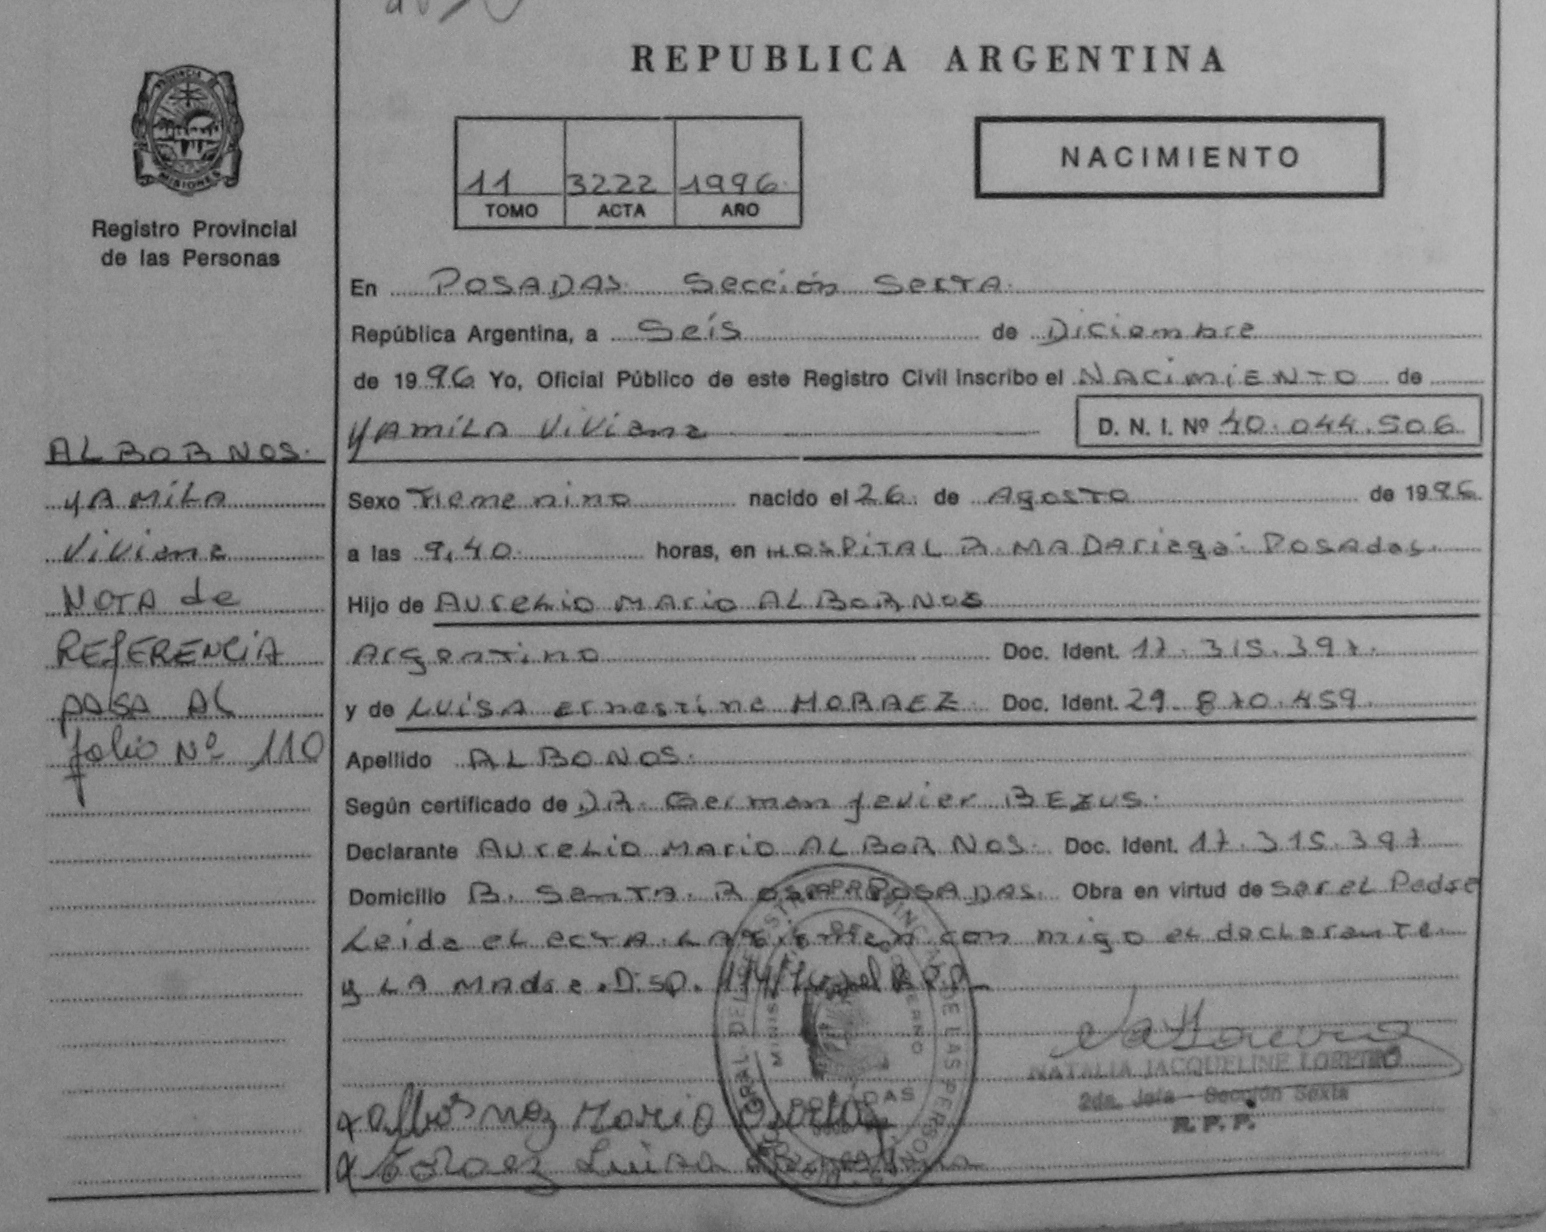 REPUBLICA ARGENTINA
PROVINCIA DE
MISIONES
Registro Provincial
de las Personas
11 3222 1996
TOMO ACTA AÑO
NACIMIENTO
En POSADAS. Sección Sexta.
República Argentina, a Seís de Diciembre
de 1996 Yo, Oficial Público de este Registro Civil inscribo el NACIMIENTO de
YAMILA Viviana D. N. I. Nº 40.044.506
ALBORNOS.
YAMILA
Viviana
NOTA de
REFERENCIA
PASA AL
folio Nº 110
Sexo Femenino nacido el 26 de Agosto de 1996
a las 9,40 horas, en HOSPITAL R. MADARiaga. POSAdas.
Hijo de AURELIO MARIO ALBORNOS
Argentino Doc. Ident. 17.315.397.
y de LUISA Ernestina MORAEZ Doc. Ident. 29.870.459
Apellido ALBONOS.
Según certificado de DR. German Javier BEZUS.
Declarante AURELIO MARIO ALBORNOS. Doc. Ident. 17.315.397
Domicilio B. Santa Rosa POSADAS. Obra en virtud de ser el Padre
Leida el acta La con migo el declarante
y LA Madre. Disp.
NATALIA JACQUELINE LOREIRO
2da. Jefa - Sección Sexta
R. P. P.
POSADAS
Albornoz Mario
Moraez Luisa